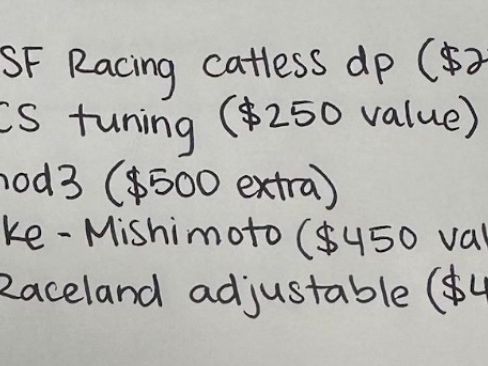 SF Racing catless dp ($2
CS tuning ($250 value)
mod3 ($500 extra)
ke - Mishimoto ($450 val
Raceland adjustable ($4